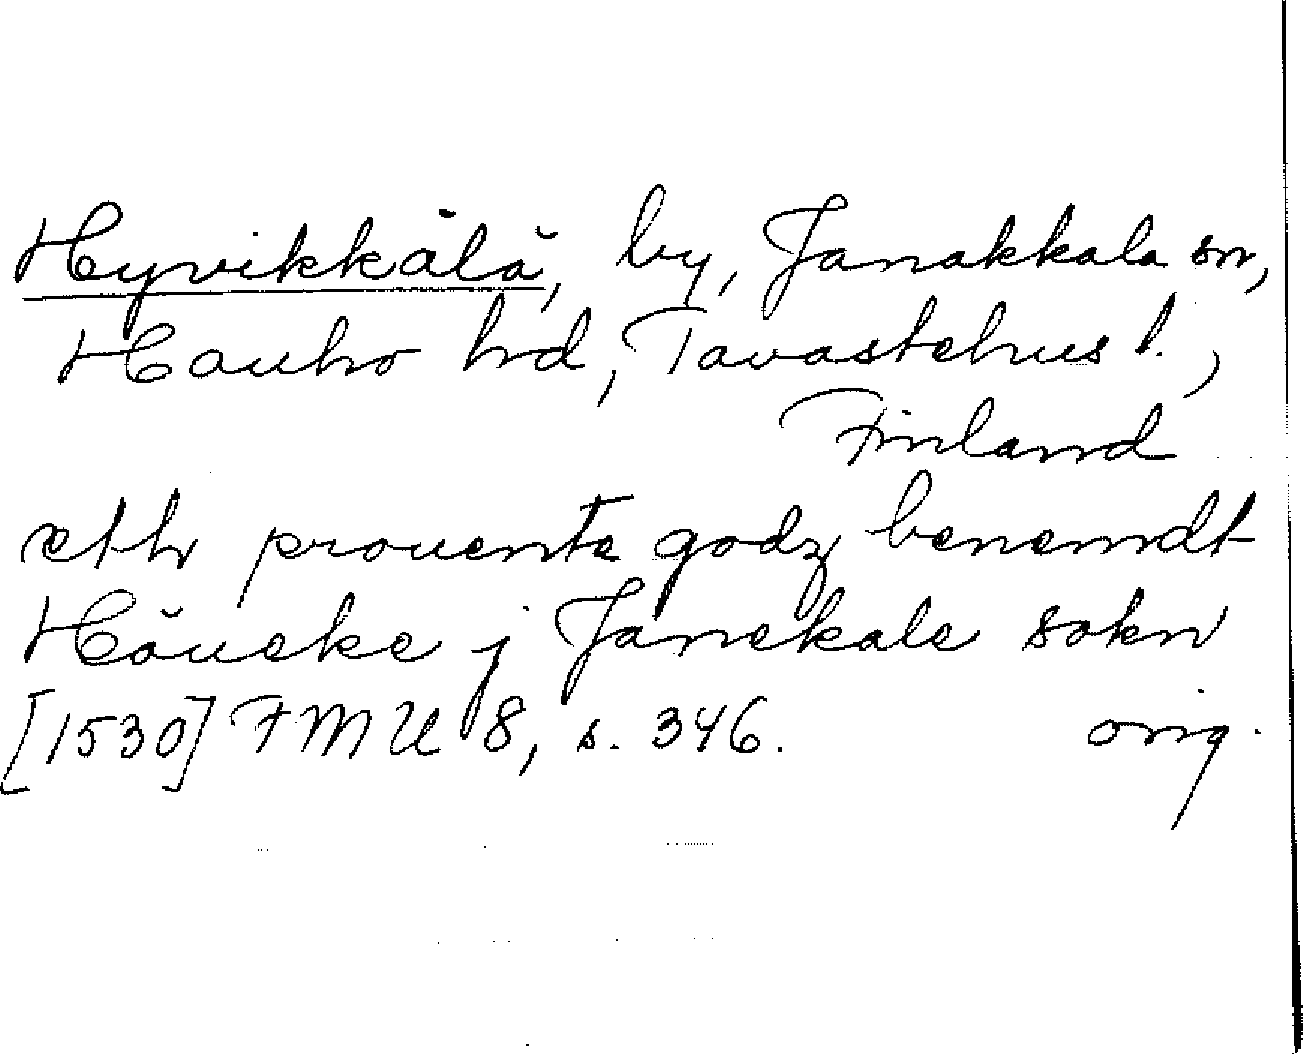 Hyvikkälä, by, Janakkala sn,
Hauho hd, Tavastehus l.,
Finland
eth prouente godz benemdt
Höueke j Janekale sokn
[1530] FMU 8, s. 346. orig.